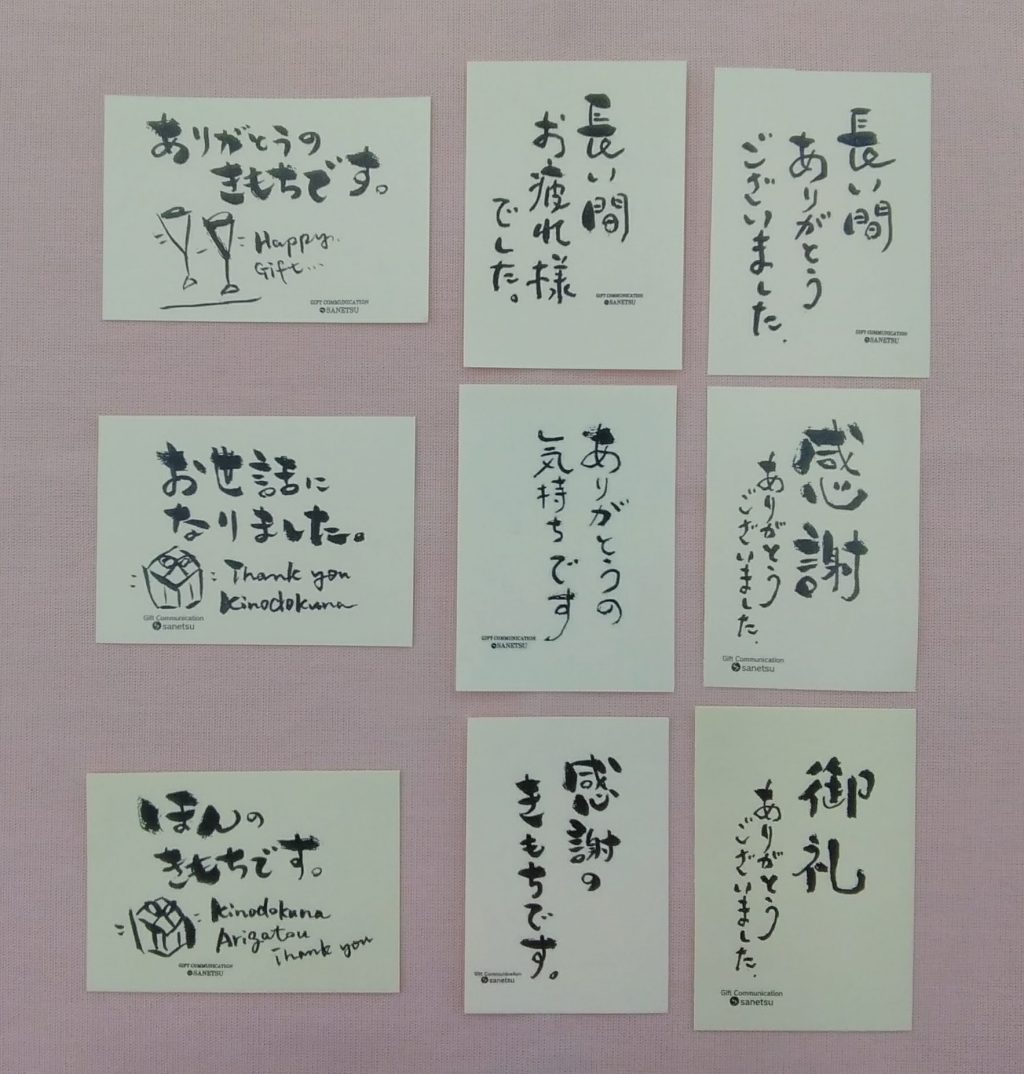 ありがとうの
きもちです。
Happy
Gift...
GIFT COMMUNICATION
SANETSU
長い間
お疲れ様
でした。
GIFT COMMUNICATION
SANETSU
長い間
ありがとう
ございました.
GIFT COMMUNICATION
SANETSU
お世話に
なりました。
Thank you
Kinodokuna
Gift Communication
sanetsu
ありがとうの
気持ちです
GIFT COMMUNICATION
SANETSU
感謝
ありがとう
ございました.
Gift Communication
sanetsu
ほんの
きもちです。
Kinodokuna
Arigatou
Thank you
GIFT COMMUNICATION
SANETSU
感謝の
きもちです。
Gift Communication
sanetsu
御礼
ありがとう
ございました.
Gift Communication
sanetsu